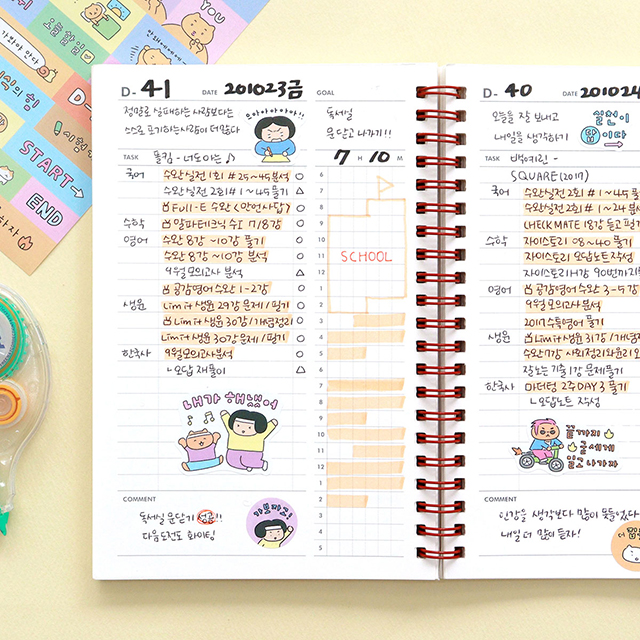 YOU
오늘할일
START
END
D- 41
DATE 201023금
GOAL
정말로 실패하는 사람보다는
스스로 포기하는 사람이 더 많다
으아아아아아!!
독서실
문 닫고 나가기!!
TASK
7 H 10 M
국어
수완실전 1회 #25~45분석
수완실전 2회 #1~45풀기
Full-E 수완<만언사답>
수학
알파테크닉 수Ⅰ 7/8강
영어
수완 8강~10강 풀기
수완 8강~10강 분석
9월 모의고사 분석
공감영어수완 1-2강
생윤
Limit생윤 29강 문제/필기
Limit생윤 30강/개념정리
Limit생윤 30강 문제/필기
한국사
9월모의고사분석
ㄴ오답 재풀이
6
7
8
9
10
11
12
1
2
3
4
5
6
7
8
9
10
11
12
1
2
3
4
5
SCHOOL
내가 해냈어
COMMENT
독서실 문닫기 성공!!
다음도전도 화이팅!
가보자고!
D- 40
DATE 201024
오늘을 잘 보내고
내일을 생각하기
실전이
답이다
TASK
백예린 -
SQUARE(2017)
국어
수완실전 2회 #1~45
수완실전 2회 #1~24분
CHECK MATE 18강 듣고 필기
수학
자이스토리 08~40 풀기
자이스토리 오답노트작성
영어
공감영어수완 3-5강
9월 모의고사 분석
2017수특영어 풀기
생윤
Limit생윤 31강/개념
한국사
마더텅 2주 DAY 3 풀기
ㄴ오답노트 작성
끝까지
굳세게
밀고 나가자
COMMENT
인강을 생각보다 많이 못들었다
내일 더 많이 듣자!